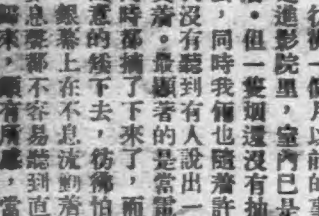 一個月以前的事
進影院里，室內已是
。但一隻烟還沒有抽
，同時我倆也隨着許
沒有聽到有人說出一
着。最顯著的是當電
時都摘了下來了，而
意的矮下去，彷彿怕
銀幕上在不息流動着
息聲都不容易聽到直
來，有所，當